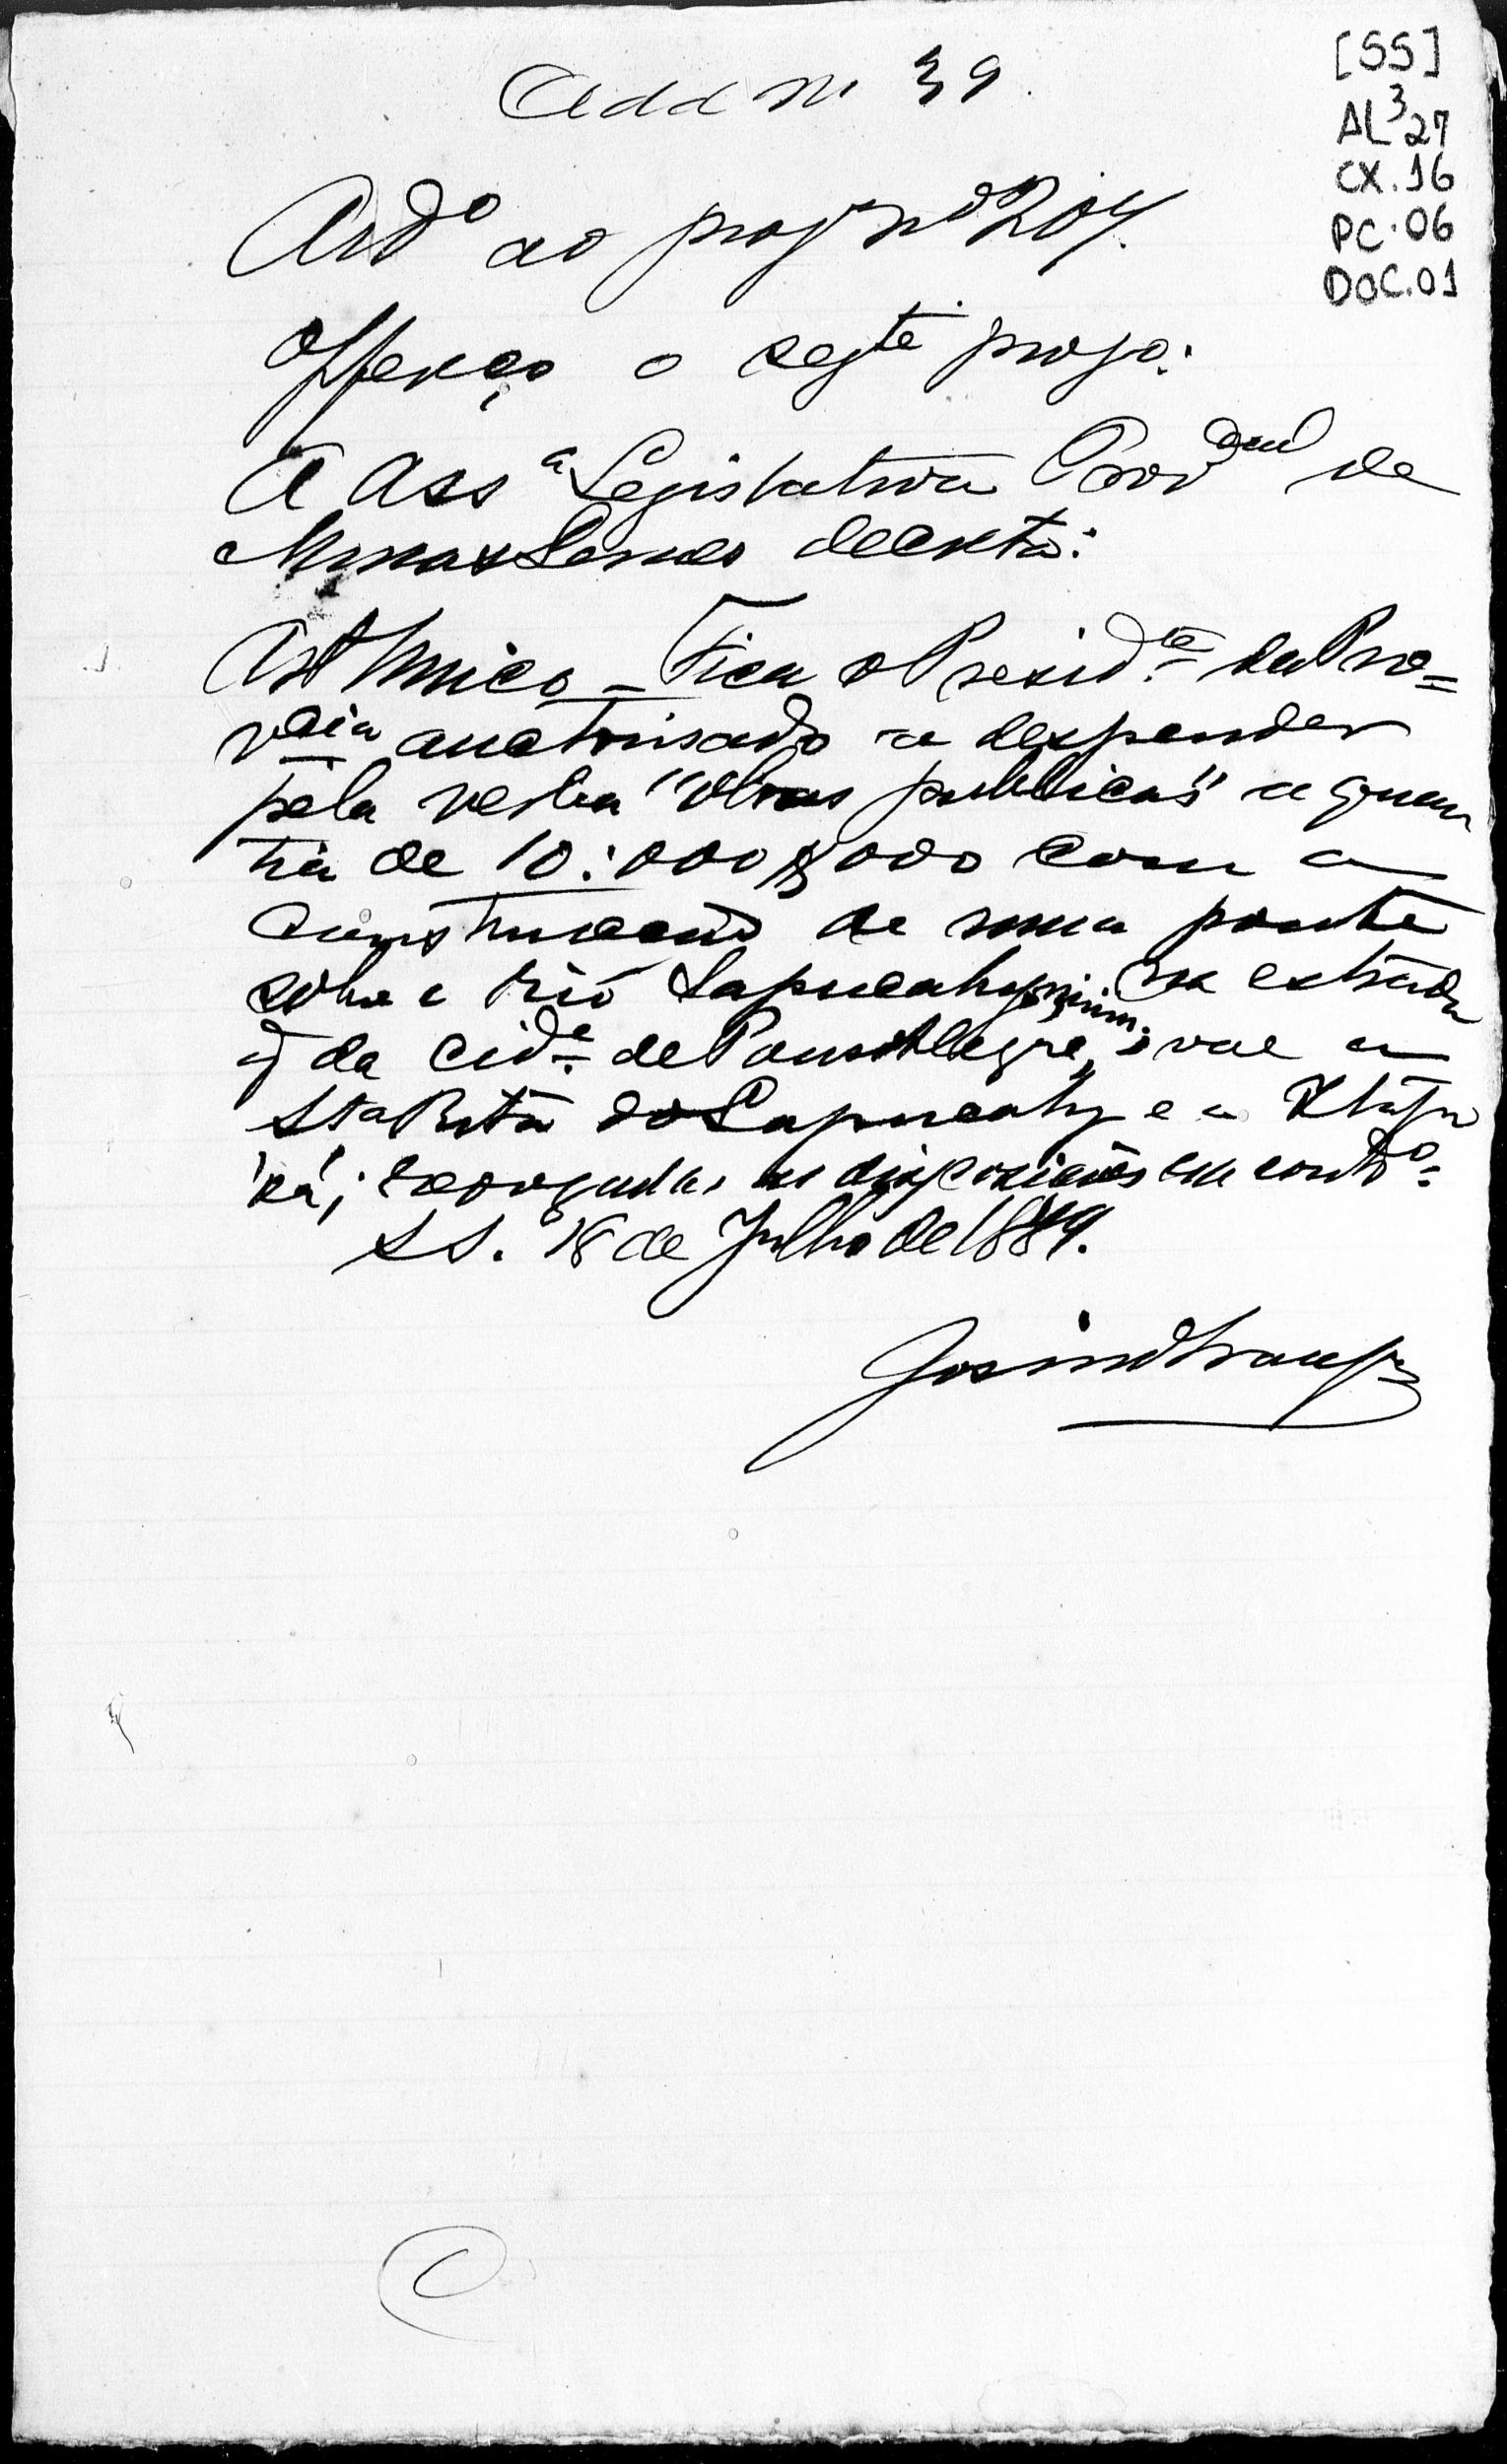 Add n. 39.
[SS]
AL³27
CX.16
PC.06
DOC.01
Add.º ao proj nº 204.
Offereço o segte projo:
A Assª Legislativa Provcial de
Minas Geraes decreta:
Art Unico – Fica o Presid.te da Pro=
vcia auctorisado a despender
pela verba "Obras publicas" a quan
tia de 10:000$000 com a
construcção de uma ponte
sobre o rio Sapucahy mirim, na estrada
q da cid.e de Pouso Alegre, vae a
Sta Rita do Sapucahy e a
; revogadas as disposições em contrº.
SS. 18 de Julho de 1889.